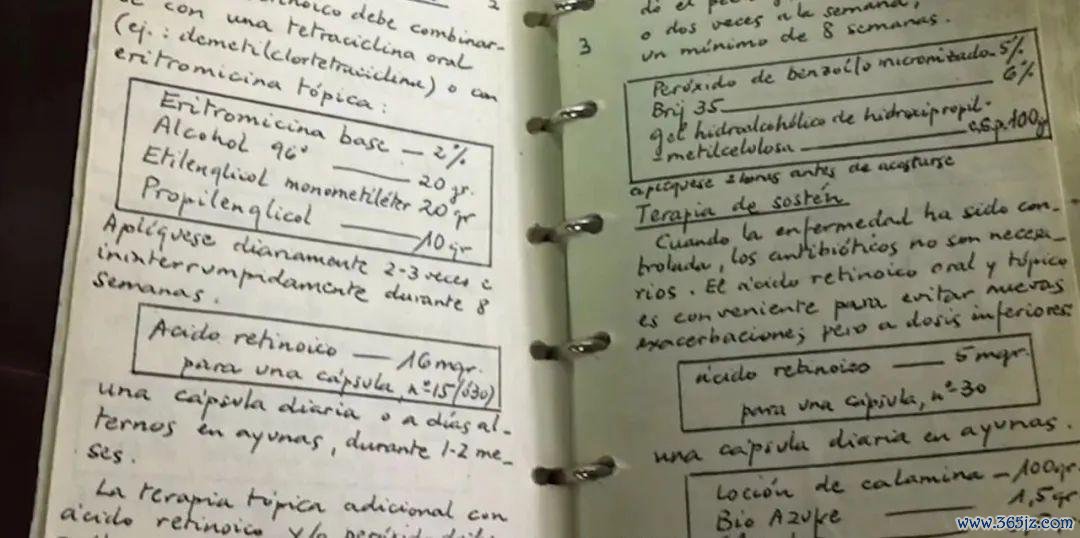 2
debe combinar-
se con una tetraciclina oral
(ej.: demetilclortetraciclina) o con
eritromicina tópica:
Eritromicina base — 2%
Alcohol 96° — 20 gr.
Etilenglicol monometiléter 20 gr
Propilenglicol — 10 gr
Aplíquese diariamente 2-3 veces e
ininterrumpidamente durante 8
semanas.
Acido retinoico — 16 mgr.
para una cápsula, nº-15 (ó30)
una cápsula diaria o a días al-
ternos en ayunas, durante 1-2 me-
ses.
La terapia tópica adicional con
ácido retinoico y/o
3
o dos veces a la semana,
un mínimo de 8 semanas.
Peróxido de benzoílo micronizado-5%
Brij 35 — 6%
gel hidroalcohólico de hidroxipropil-
-metilcelulosa — c.s.p. 100 gr
aplíquese 2 horas antes de acostarse
Terapia de sostén
Cuando la enfermedad ha sido con-
trolada, los antibióticos no son necesa-
rios. El ácido retinoico oral y tópico
es conveniente para evitar nuevas
exacerbaciones, pero a dosis inferiores:
ácido retinoico — 5 mgr.
para una cápsula, nº-30
una cápsula diaria en ayunas.
Loción de calamina — 100 gr.
Bio Azufre — 1,5 gr
www.365jz.com